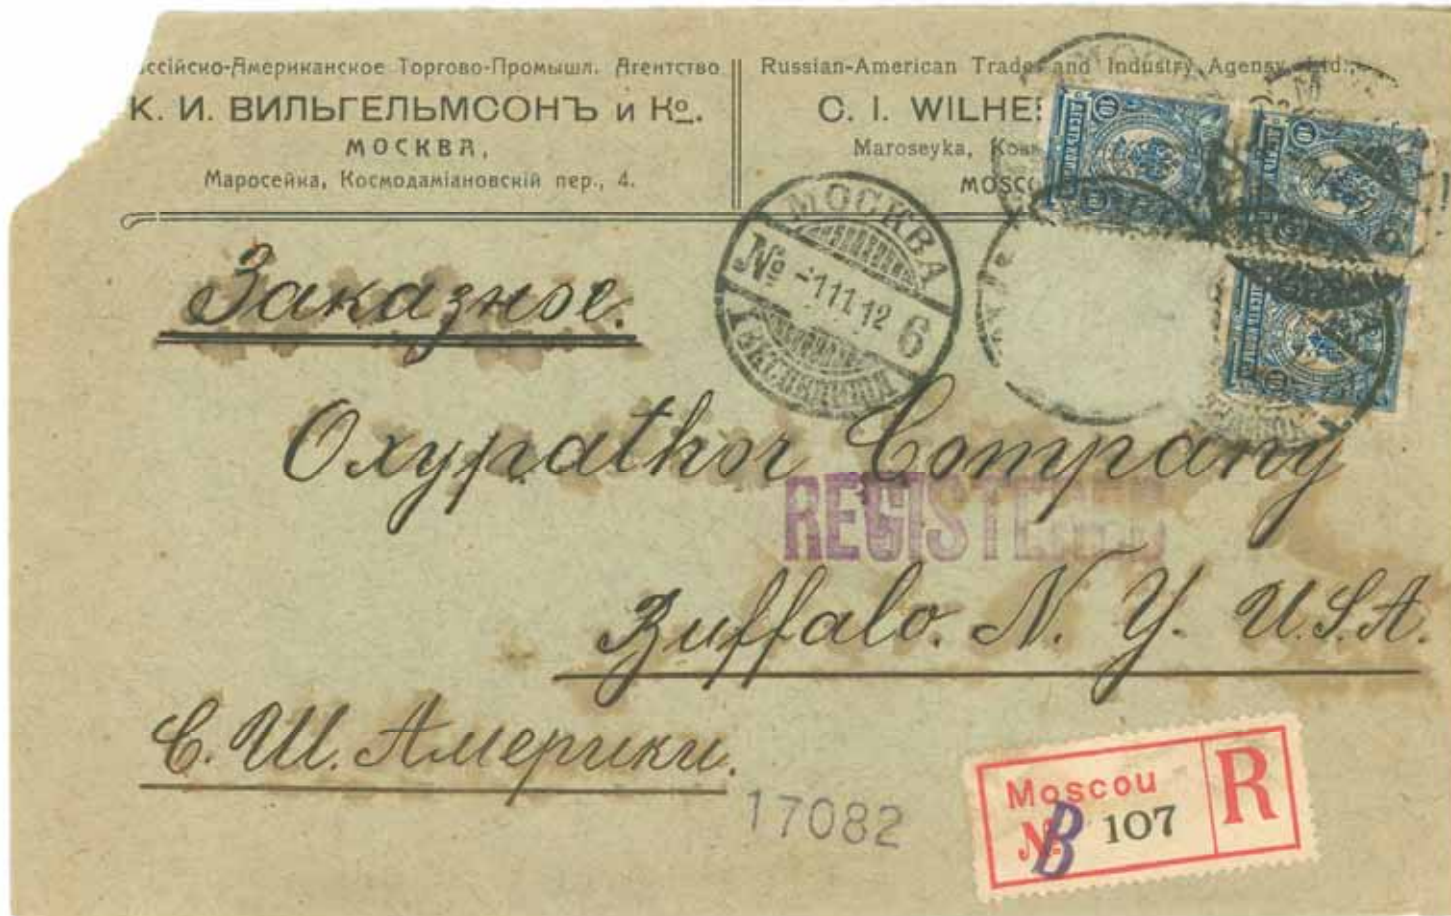 ссійско-Американское Торгово-Промышл. Агентство
К. И. ВИЛЬГЕЛЬМСОНЪ и Ко.
МОСКВА,
Маросейка, Космодаміановскій пер., 4.
Russian-American Trade and Industry Agensy Ltd.,
C. I. WILHE
Maroseyka,
MOSCO
МОСКВА
№ -1 11 12 6
Заказное.
Oxypathor Company
REGISTERED
Buffalo. N. Y. U.S.A.
С. Ш. Америки.
17082
Moscou
№ B 107
R